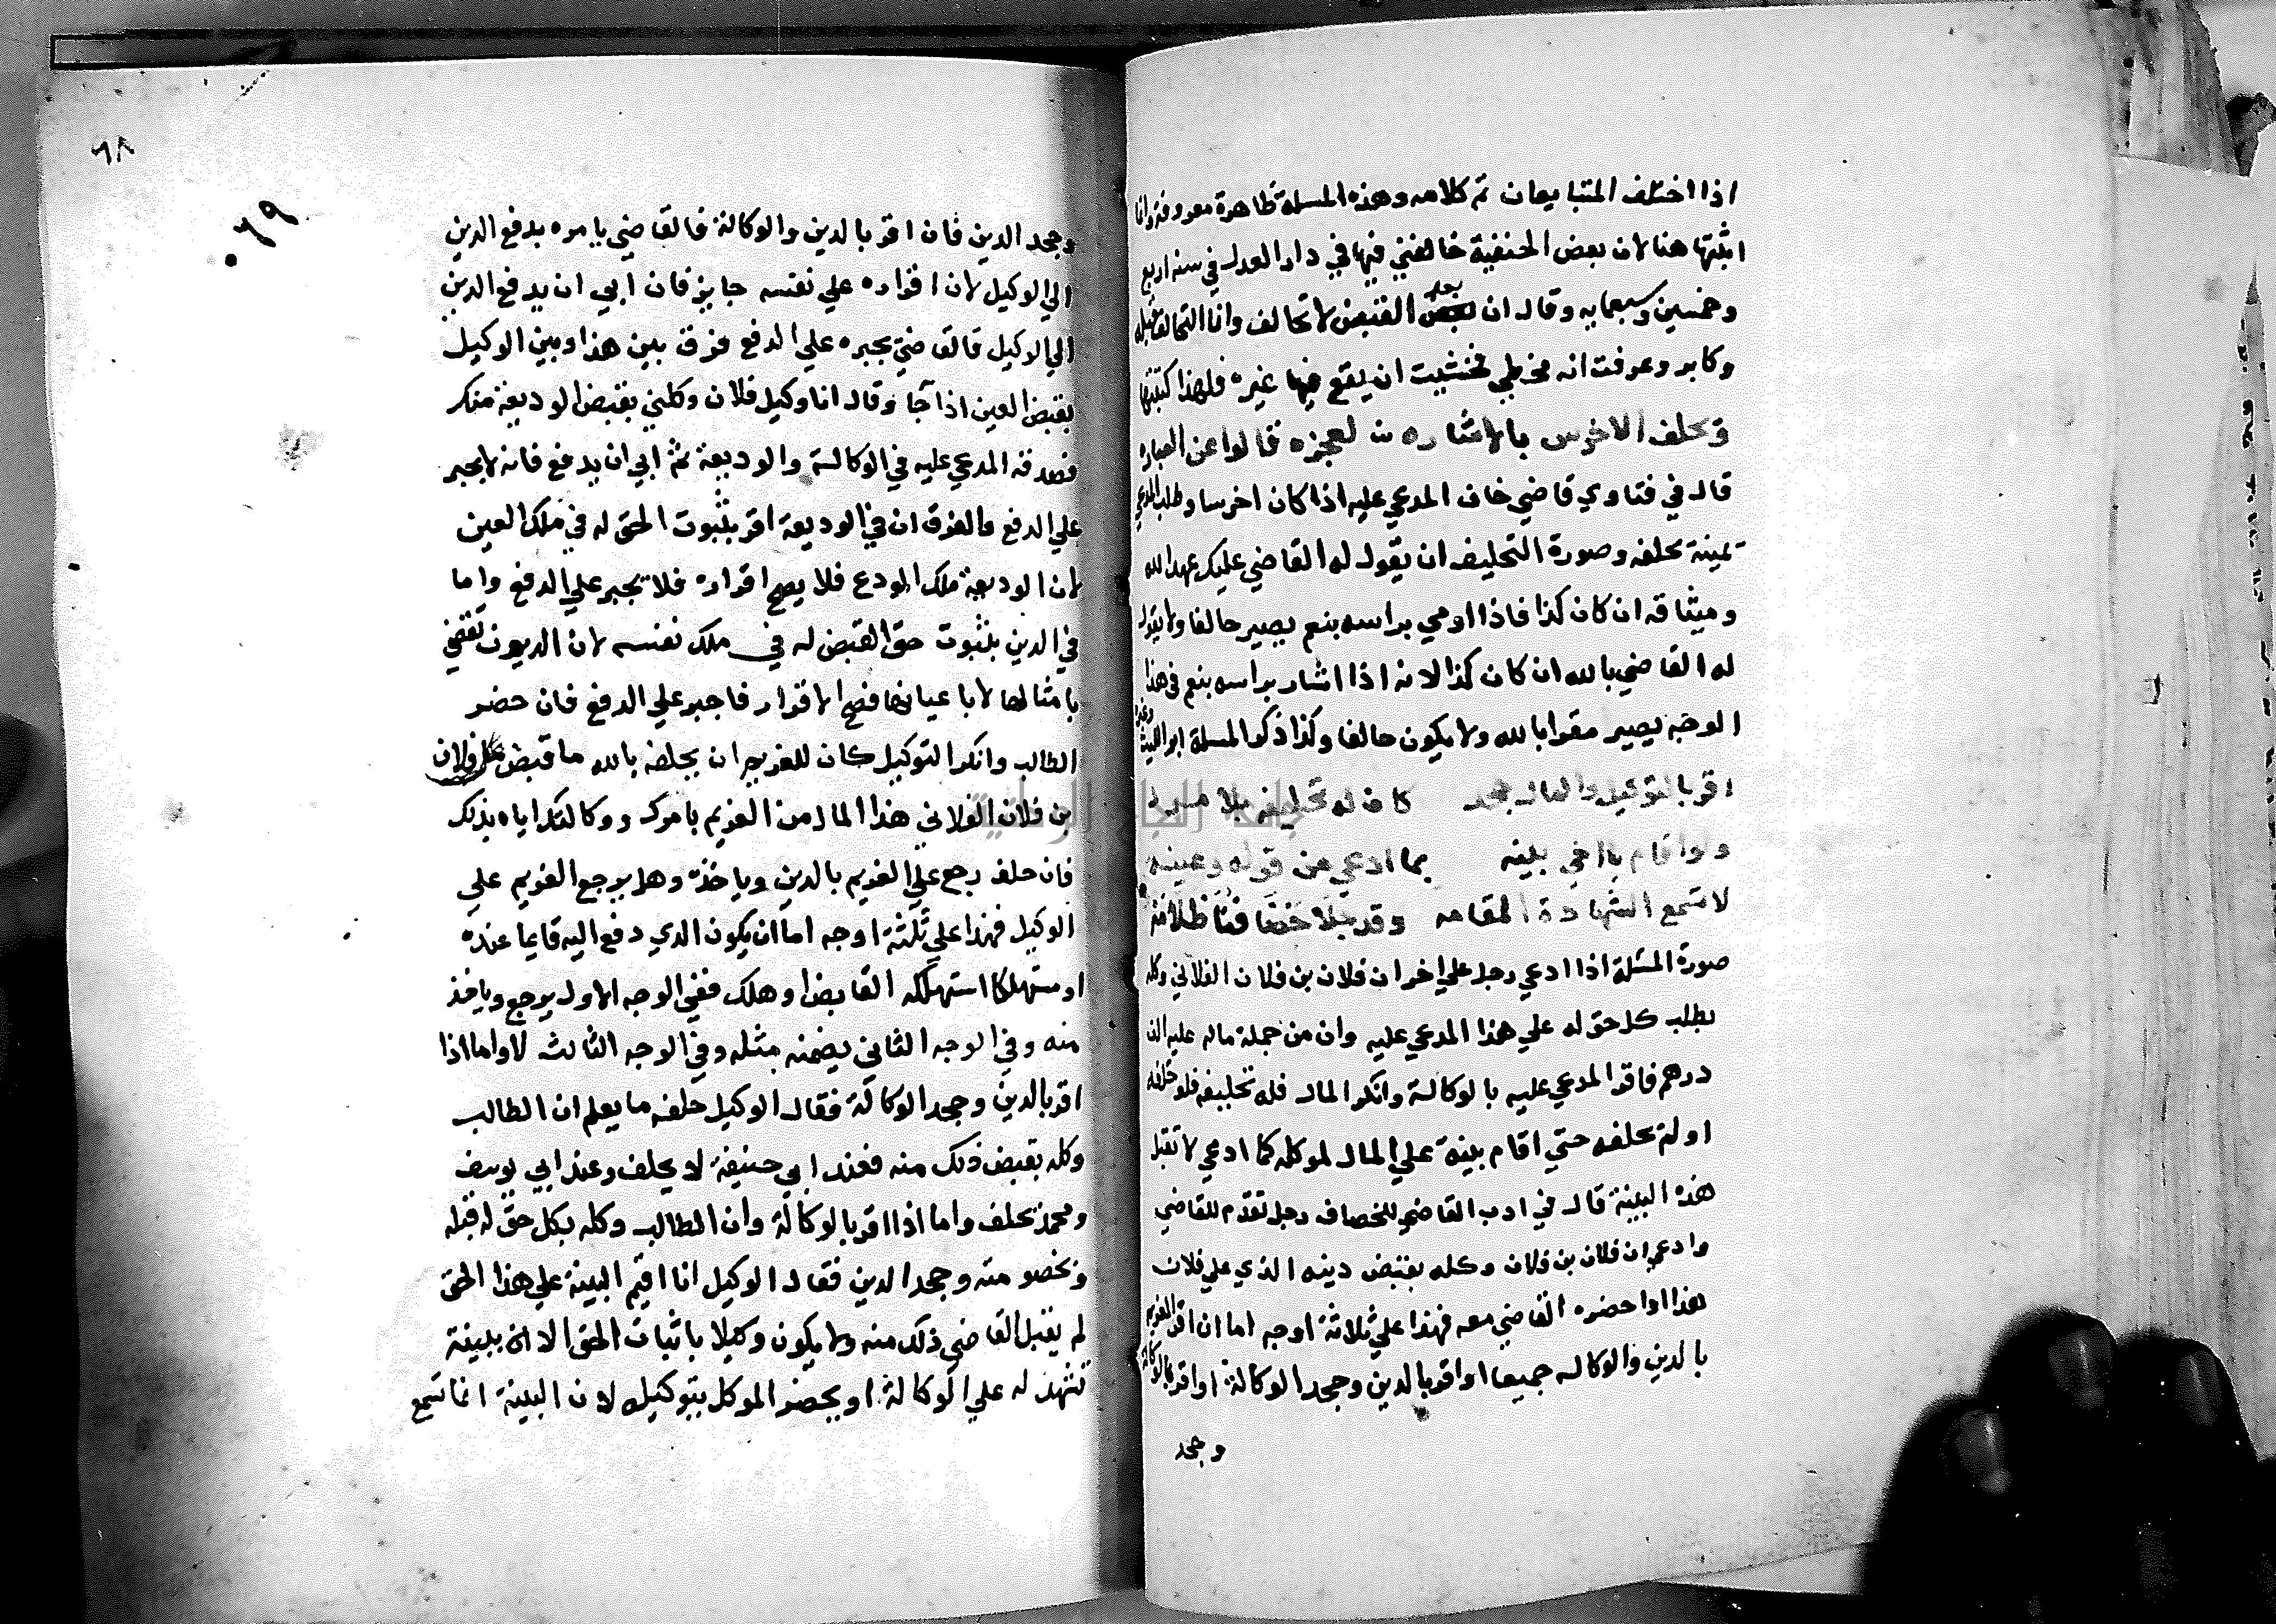 اذا اختلف المتبايعان تم كلامه وهذه المسلة ظاهرة معروفة وانا
اثبتها هنا لان بعض الحنفية خالفني فيها في دار العدل في سنة اربع
وخمسين وسبعمايه وقال ان بعد القبض لا تحالف وانا التحالف قبله
وكابر وعرفت انه مخطي فخشيت ان يقع فيها غيره فلهذا كتبتها
وحلف الاخرس بالاشاره لعجزه قالوا عن العباره
قال في فتاوي قاضي خان المدعي عليه اذا كان اخرسا وطلب المدعي
يمينه يحلفه وصورة التحليف ان يقول له القاضي عليك عهد الله
وميثاقه ان كان كذا فاذا اومي براسه بنعم يصير حالفا ولا يقول
له القاضي بالله ان كان كذا لانه اذا اشار براسه بنعم في هذا
الوجه يصير مقرا بالله ولا يكون حالفا وكذا ذكر المسلة ابو الليث وغيره
اقر بالتوكيل والمال جحد كان له تحليفه بلا مرد
ولو اقام بينة بما ادعي من قوله وعينه
لا تسمع الشهادة المقامه وقد جلا
صورة المسئلة اذا ادعي رجل علي اخر ان فلان بن فلان الفلاني وكله
بطلب كل حق له علي هذا المدعي عليه وان من جملة ماله عليه الف
درهم فاقر المدعي عليه بالوكالة وانكر المال فله تحليفه فلو حلفه
او لم يحلفه حتي اقام بينة علي المال لموكله كما ادعي لا تقبل
هذه البينة قال في ادب القاضي للخصاف رجل تقدم للقاضي
وادعي ان فلان بن فلان وكله بقبض دينه الذي علي فلان
هذا واحضره القاضي معه فهذا علي ثلاثة اوجه اما ان اقر الغريم
بالدين والوكاله جميعا او اقر بالدين وجحد الوكالة او اقر بالوكالة
وجحد
٦٨
٦٩
وجحد الدين فان اقر بالدين والوكالة فالقاضي يامره بدفع الدين
الي الوكيل لان اقراره علي نفسه جايز فان ابي ان يدفع الدين
الي الوكيل فالقاضي يجبره علي الدفع فرق بين هذا وبين الوكيل
بقبض العين اذا جا وقال انا وكيل فلان وكلني بقبض الوديعة منكر
فصدقه المدعي عليه في الوكالة والوديعة ثم ابي ان يدفع فانه لا يجبر
علي الدفع والفرق ان في الوديعة اقر بثبوت الحق له في ملك العين
لان الوديعة ملك المودع فلا يصح اقراره فلا يجبر علي الدفع واما
في الدين بثبوت حق القبض له في ملك نفسه لان الديون تقضي
بامثالها لا باعيانها فصح الاقرار فاجبر علي الدفع فان حضر
الطالب وانكر التوكيل كان للغريم ان يحلفه بالله ما قبض فلان
بن فلان الفلاني هذا المال من الغريم بامرك ووكالتك اياه بذلك
فان حلف رجع علي الغريم بالدين وياخذه وهل يرجع الغريم علي
الوكيل فهذا علي ثلثة اوجه اما ان يكون الذي دفع اليه قايما عنده
او مستهلكا استهلكه القابض او هلك ففي الوجه الاول يرجع وياخذ
منه وفي الوجه الثاني يضمنه مثله وفي الوجه الثالث لا واما اذا
اقر بالدين وجحد الوكالة فقال الوكيل حلفه ما يعلم ان الطالب
وكله بقبض ذلك منه فعند ابي حنيفة لا يحلف وعند ابي يوسف
ومحمد يحلف واما اذا اقر بالوكالة وان الطالب وكله بكل حق له قبله
وبخصومته وجحد الدين فقال الوكيل انا اقيم البينة علي هذا الحق
لم يقبل القاضي ذلك منه ولا يكون وكيلا باثبات الحق الا ان ببينة
تشهد له علي الوكالة او يحضر الموكل بتوكيله لان البينة انما تسمع